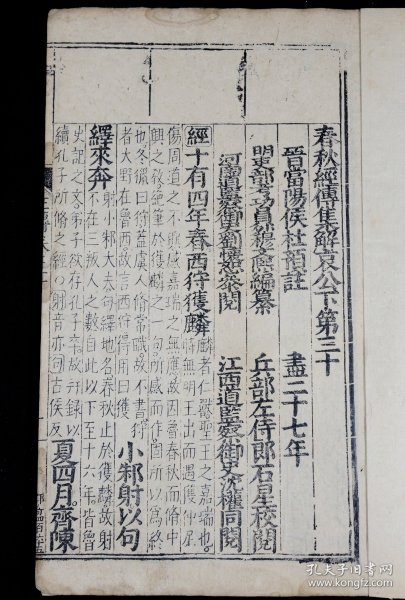 春秋經傳集解哀公下第三十
晉當陽侯杜預註　盡二十七年
吏部考功員外郎穆文熙編纂　兵部左侍郎石星校閱
河南道監察御史劉懷恕參閱　江西道監察御史沈權同閱
經十有四年春西狩獲麟麟者仁獸聖王之嘉瑞也時無明王出而遇獲仲尼
傷周道之不興感嘉瑞之無應故因魯春秋而脩中
興之教絕筆於獲麟之一句所感而作固所以為終
也冬獵曰狩蓋虞人脩常職故不書狩
者大野在魯西故言西狩得用曰獲　小邾射以句
繹來奔射小邾大夫句繹地名春秋止於獲麟故射
不在三叛人之數自此以下至十六年皆魯
史記之文弟子欲存孔子卒故并錄以
續孔子所脩之經射音亦句古侯反　夏四月齊陳
孔夫子旧书网
www.kongfz.com